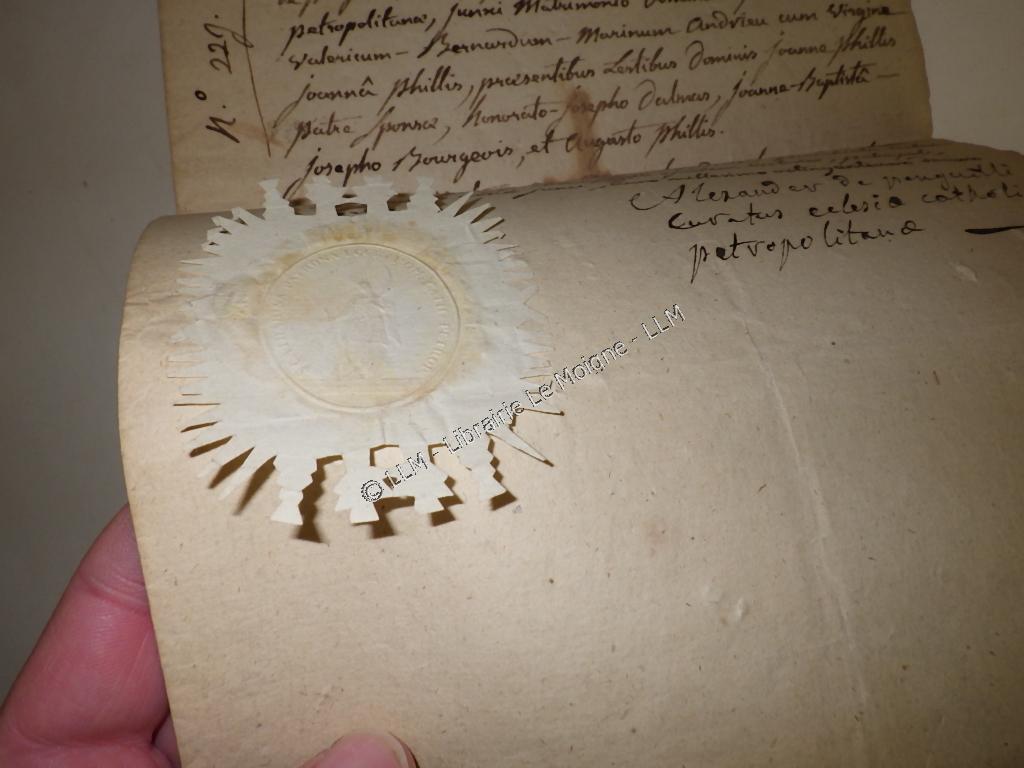 N.º 229.
petropolitanæ, junxi Matrimonio
Valericum - Bernardum - Marinum Andrieu cum Virgine
joannâ phillis, præsentibus testibus Dominis joanne phillis
patre sponsæ, honorato-josepho Dalmas, joanne-Baptistâ -
josepho Bourgeois, et Augusto phillis.
Alexander de
Curatus eclesiæ catholi
petropolitanæ
© LLM - Librairie Le Moigne - LLM